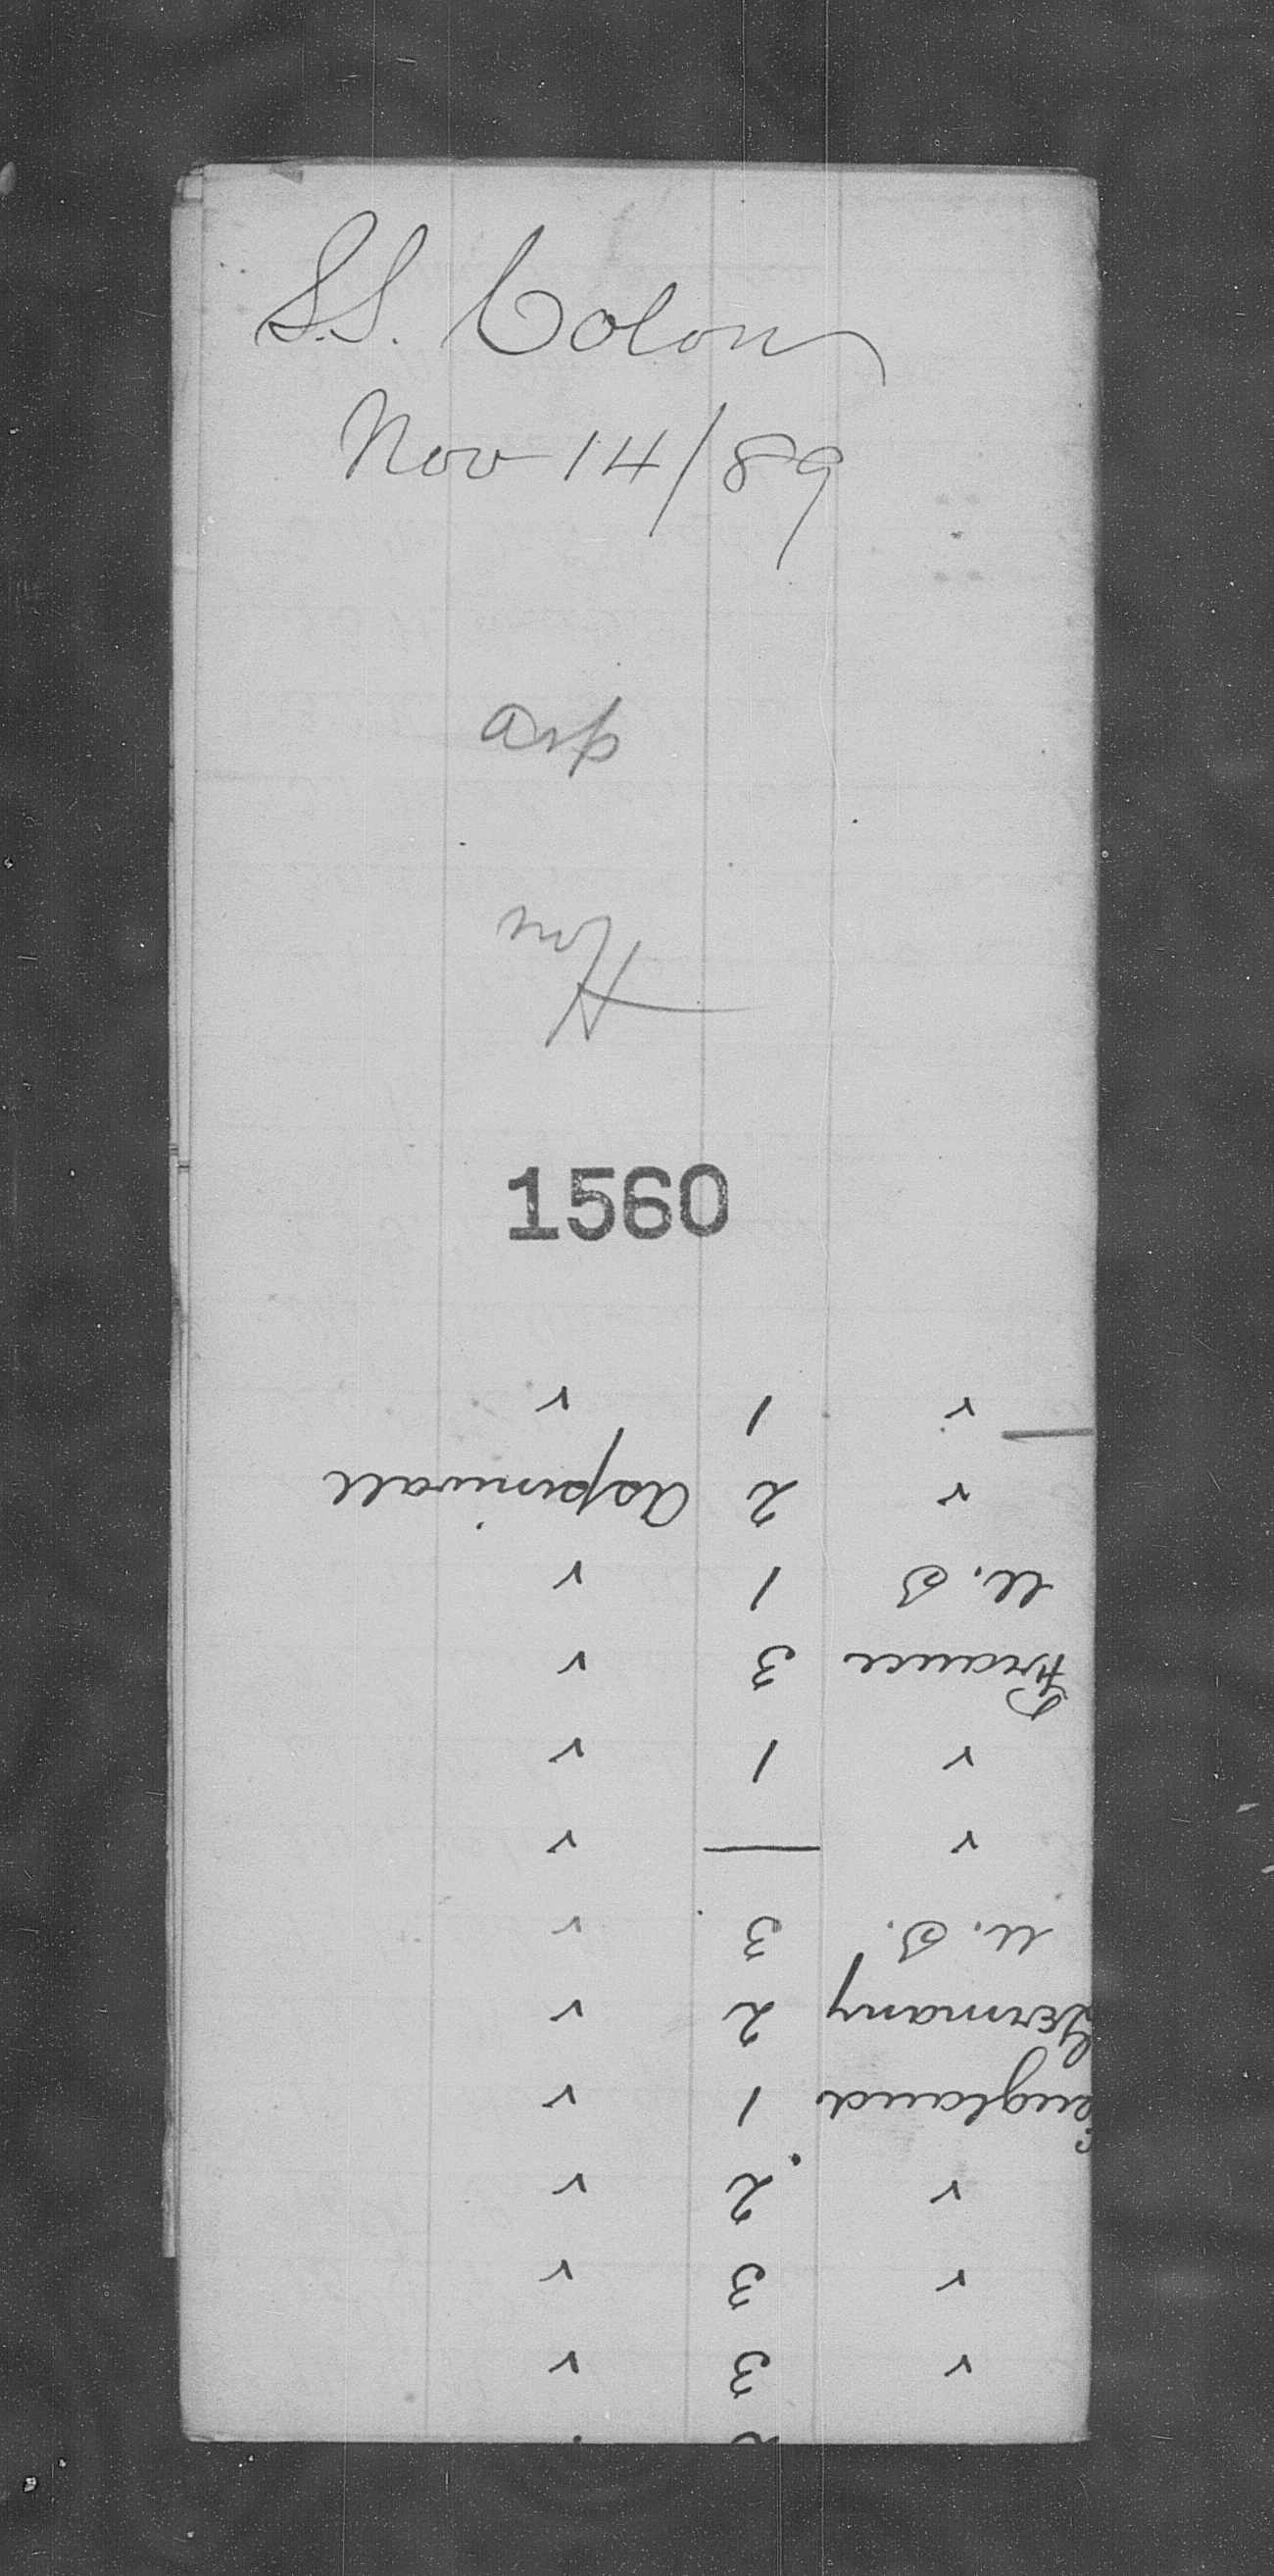 S.S. Colon
Nov 14/89
Asp
1560
v 3 v
v 3 v
v 2 v
England 1 v
Germany 2 v
U. S. 3 v
v — v
v 1 v
France 3 v
U. S 1 v
v 2 Aspinwall
v 1 v